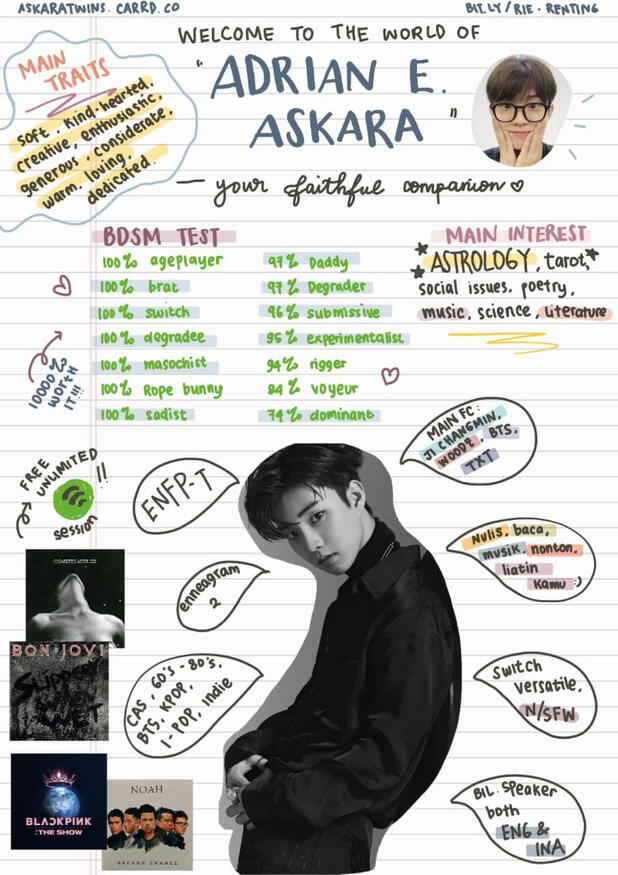 ASKARATWINS.CARRD.CO
BIT.LY/RIE-RENTING
WELCOME TO THE WORLD OF
"ADRIAN E.
ASKARA"
— your faithful companion
MAIN
TRAITS
soft, kind-hearted,
creative, enthusiastic,
generous, considerate,
warm, loving,
dedicated.
BDSM TEST
100% ageplayer
100% brat
100% switch
100% degradee
100% masochist
100% Rope bunny
100% sadist
97% Daddy
97% Degrader
96% submissive
95% experimentalist
94% rigger
84% voyeur
74% dominant
10000%
WORTH
IT!!!
MAIN INTEREST
ASTROLOGY, tarot,
social issues, poetry,
music, science, literature
MAIN FC:
JI CHANGMIN,
WOODZ, BTS,
TXT
FREE
UNLIMITED
session
!!
ENFP-T
Nulis, baca,
musik, nonton,
liatin
kamu :)
enneagram
2
CIGARETTES AFTER SEX
BON JOVI
Slippery
When
WET
CAS, 60's-80's,
BTS, KPOP,
I-POP, Indie
Switch
versatile,
N/SFW
BLACKPINK
:THE SHOW
NOAH
SECOND CHANCE
BIL. Speaker
both
ENG &
INA